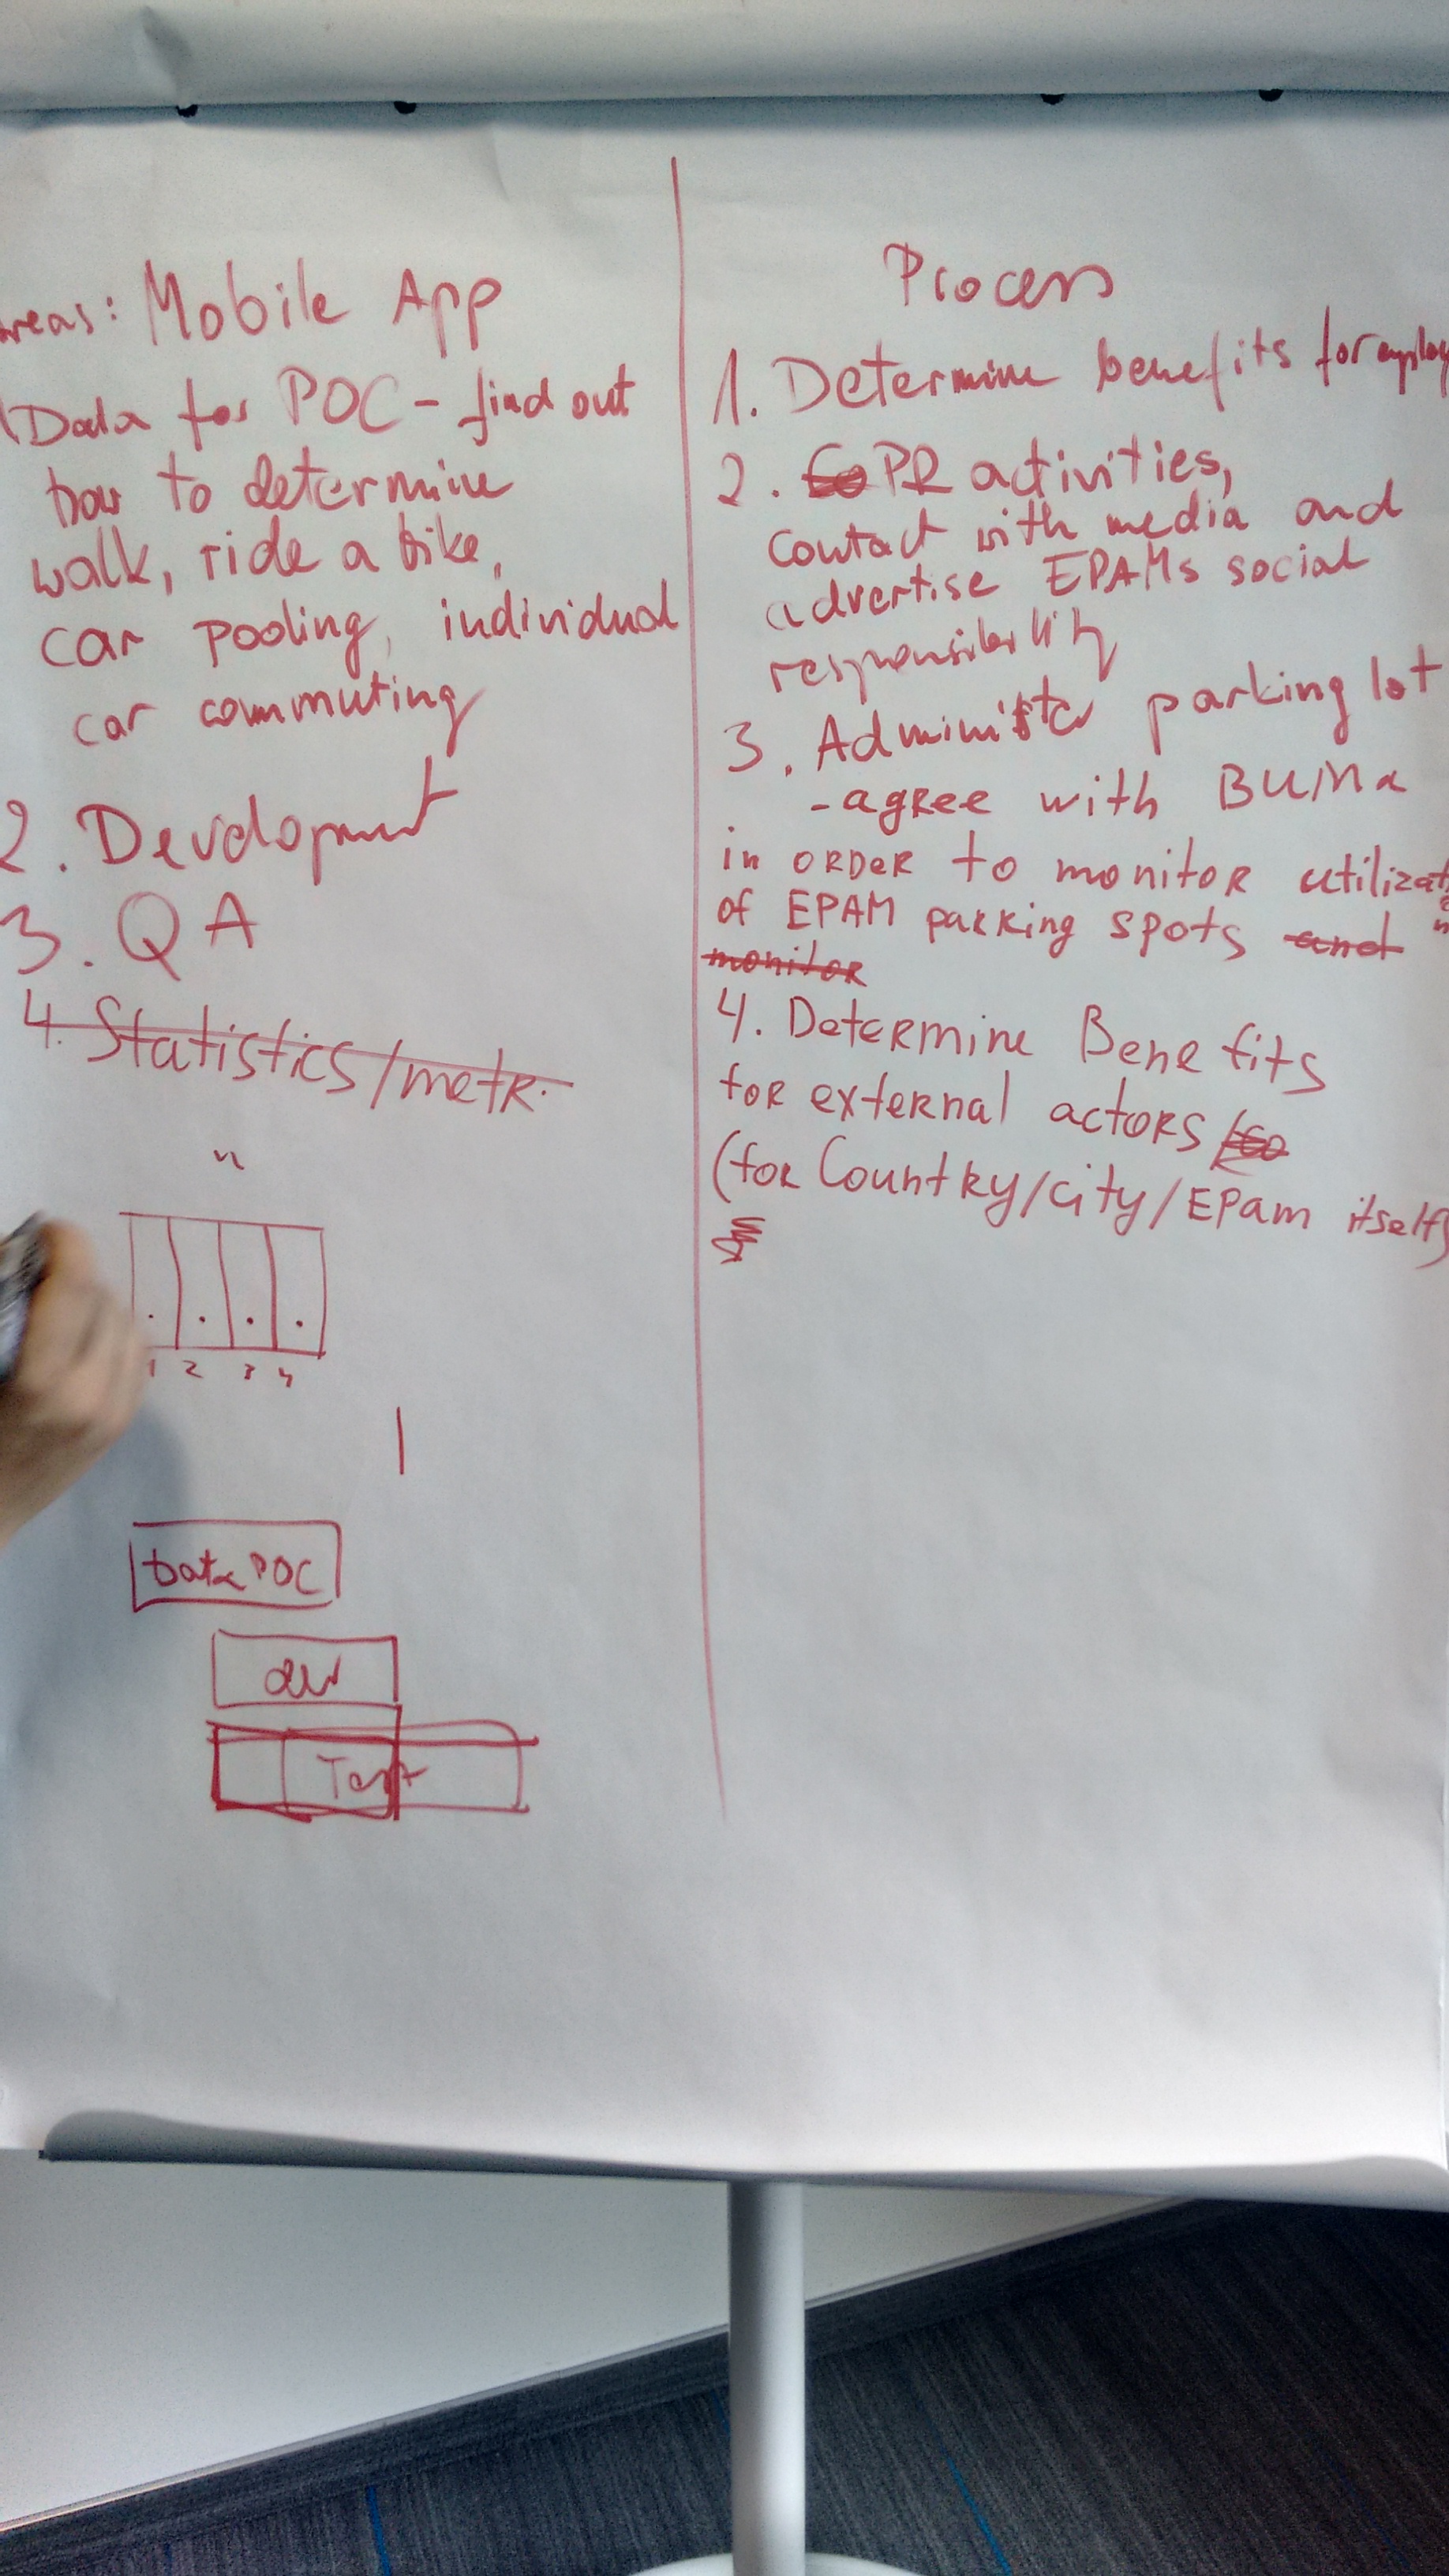 reas: Mobile App
Data for POC - find out
how to determine
walk, ride a bike,
car pooling, individual
car commuting
2. Development
3. QA
4. Statistics/metr.
1 2 3 4
Data POC
dev
Test
Process
1. Determine benefits for employ
2. PR activities,
contact with media and
advertise EPAMs social
responsibility
3. Administer parking lot
- agree with BUMA
in order to monitor utilizat
of EPAM parking spots and
monitor
4. Determine Benefits
for external actors
(for Country/city/EPam itself)